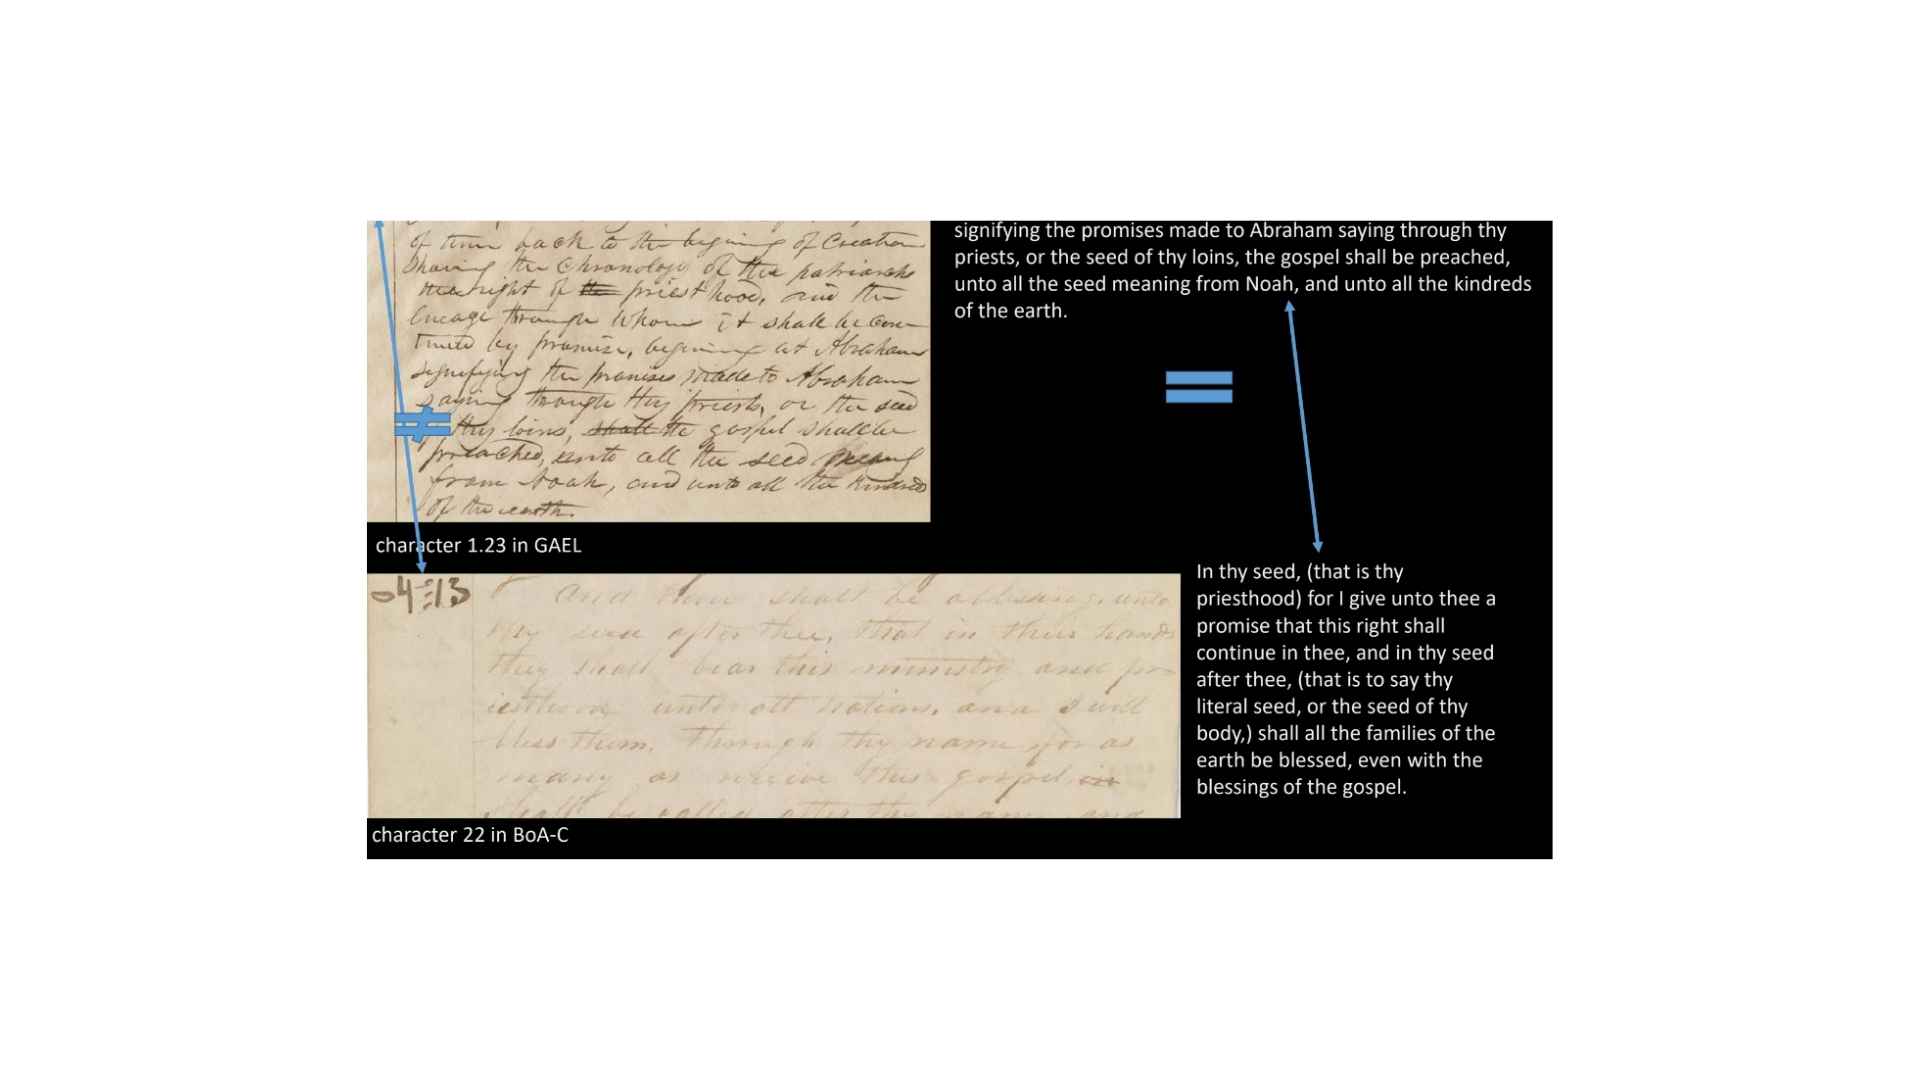 of time back to the begining of Creation
Shewing the Chronology of the patriarchs
the right of the priesthood, and the
lineage through whom it shall be con-
tinued by promise, begining at Abraham
signifying the promises made to Abraham
saying through thy priests, or the seed
thy loins, shall the gospel shall be
preached, unto all the seed
from Noah, and unto all the kindreds
of the earth.
character 1.23 in GAEL
signifying the promises made to Abraham saying through thy
priests, or the seed of thy loins, the gospel shall be preached,
unto all the seed meaning from Noah, and unto all the kindreds
of the earth.
=
≠
And thou shalt be a blessing, unto
thy seed after thee, that in their hands
they shall bear this ministry and pr-
iesthood unto all nations, and I will
bless them, through thy name for as
many as receive this gospel in
shall be called after thy name, and
character 22 in BoA-C
In thy seed, (that is thy
priesthood) for I give unto thee a
promise that this right shall
continue in thee, and in thy seed
after thee, (that is to say thy
literal seed, or the seed of thy
body,) shall all the families of the
earth be blessed, even with the
blessings of the gospel.